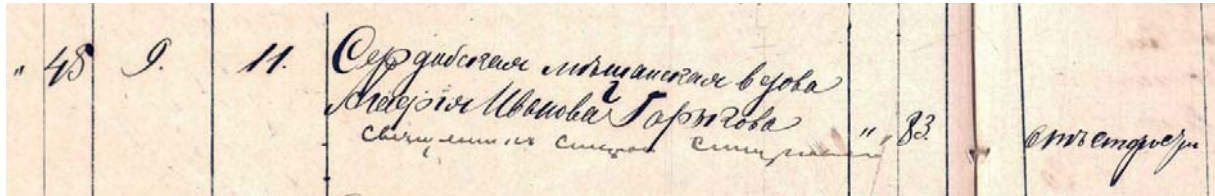 " 48 9. 11. Сердобская мѣщанская вдова
Марія Иванова Гарыгова " " 83. отъ старости